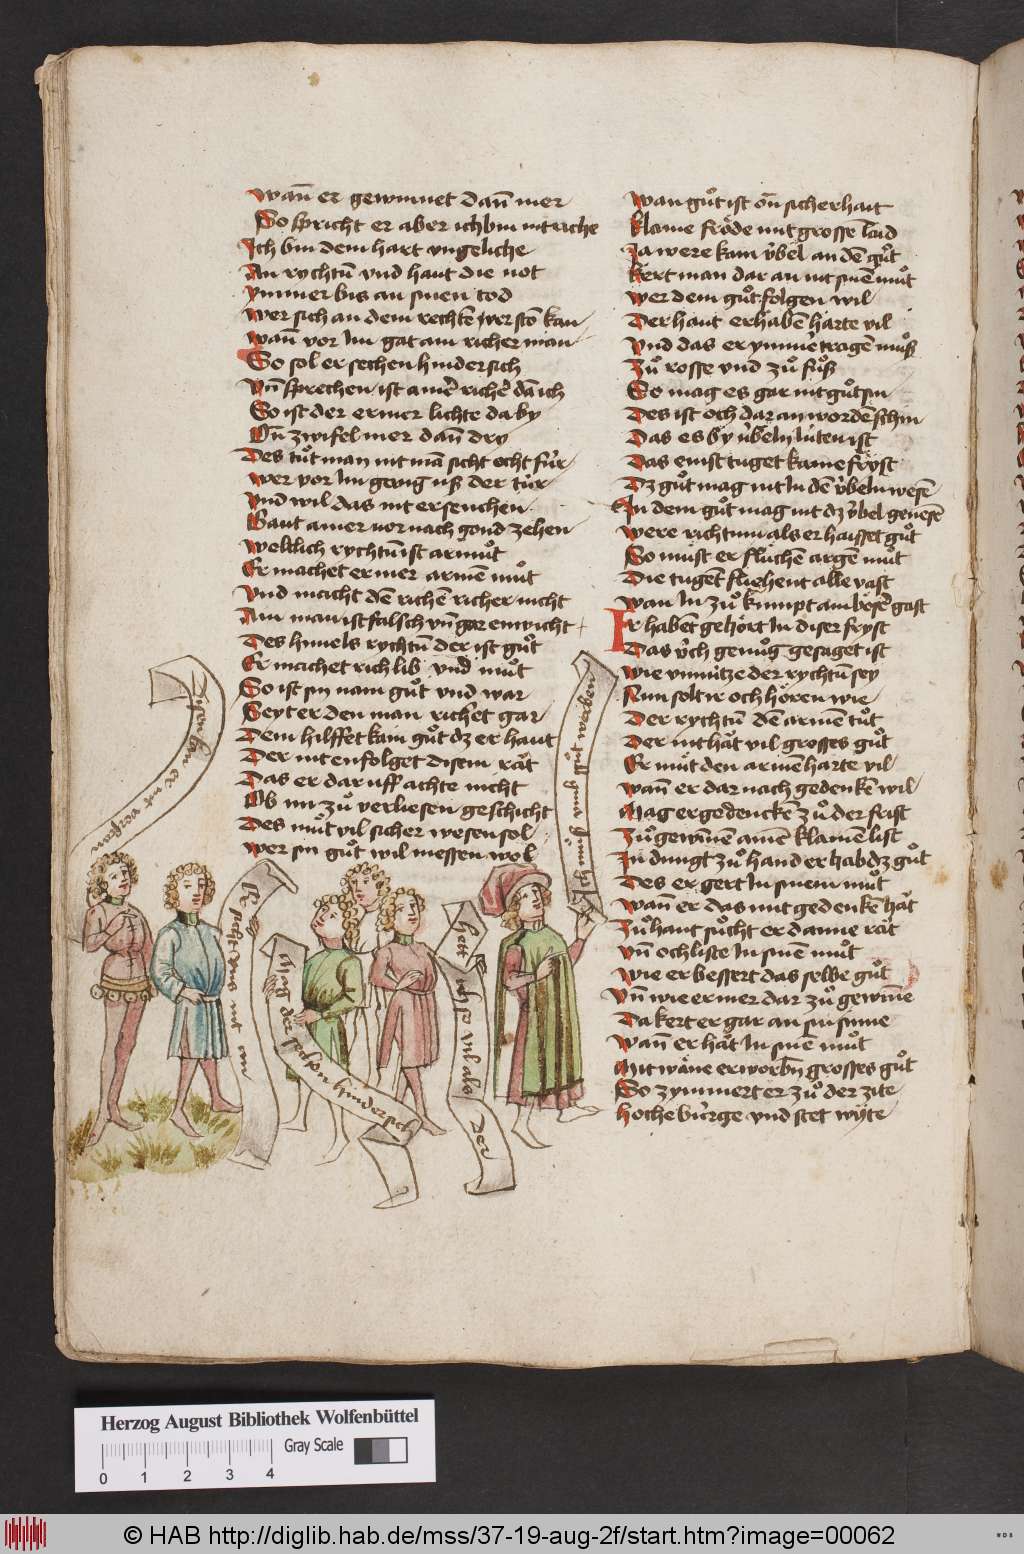 wan̄ er gewinnet dan̄ mer
So spricht er aber ich bin nit riche
Ich bin dem hart vngeliche
An rychtu̅ vnd haut die not
ymmer bis an sinen tod
wer sich an dem rechtē verston kan
wan̄ vor Im gat ain richer man
So sol er sechen hindersich
vn̄ sprechen ist ainer richer dā ich
So ist der ermer lichte da by
On̄ zwifel mer dan̄ dry
Des tuͦt man nit mā sicht echt fúr
wer vor Im geng uß der túr
vnd wil das nit ersenchen
Gaut ainer vor nach gond zehen
weltlich rychtu̅ ist armuͦt
Er machet ermer armē muͦt
vnd macht dē richē richer nicht
Am man ist falsch vn̄ gar enwicht
Des himels rychtu̅ der ist guͦt
Er machet rich lib vnd muͦt
So ist sin nam guͦt vnd war
Seyt er den man richet gar
Dem hilffet kain guͦt dz er haut
Der nit enfolget disem răt
Das er dar uff achte nicht
Ob im zuͦ verliesen geschicht
Des muͦt vil sicher wesen sol
wer sin guͦt wil niessen wol
wan guͦt ist on̄ sicherhait
klaine frőde mit grosse laid
Ja were kain v́bel an dē guͦt
kert man dar an nit sinē muͦt
wer dem guͦt folgen wil
Der haut erhabē harte vil
vnd das er ymmer tragē muͦß
Zuͦ rosse vnd zuͦ fuͦß
So mag es gar nit guͦt sin
Des ist och dar an wordē schin
Das es by v́beln lúten ist
Das ainist tuget kaine fryst
Dz guͦt mag nit In dē v́beln wesē
In dem guͦt mag nit dz v́bel genesē
were richtum als er haisset guͦt
So muͤst er fluͤchen argē muͦt
Die tugēt fliehent alle vast
wan In zuͦ kumpt ain boͤser gast
Ir habet gehoͤrt In diser fryst
Das v́ch genuͦg gesaget ist
wie vnnútze der rychtu̅ sey
Nun solt ir och hoͤren wie
Der rychtu̅ dē armē tuͦt
Der nit hăt vil grosses guͦt
Er muͤt den armē harte vil
wan̄ er dar nach gedenkē wil
Mag er gedenckē zuͦ der frist
Zuͦ gewinnē ainē klainē list
In dungt zuͦ hand er hab dz guͦt
Des er gert In sinem muͦt
wan̄ er das mit gedenkē hăt
Zuͦ hant suͦcht er danne răt
vn̄ och liste In sinē muͦt
wie er bessert das selbe guͦt
vn̄ wie er mer dar zuͦ gewinne
Da kert er gar an sin sinne
wan̄ er hăt In sinē muͦt
Mit wăne erworbn̄ grosses guͦt
So zymmert er zuͦ der zite
hoche búrge vnd stet wyte
Disen kan er nit
Er sicht vns nit an
Mag der sechen hindersich
hett ich so vil als der
Herzog August Bibliothek Wolfenbüttel
Gray Scale
0 1 2 3 4
© HAB http://diglib.hab.de/mss/37-19-aug-2f/start.htm?image=00062
WDB